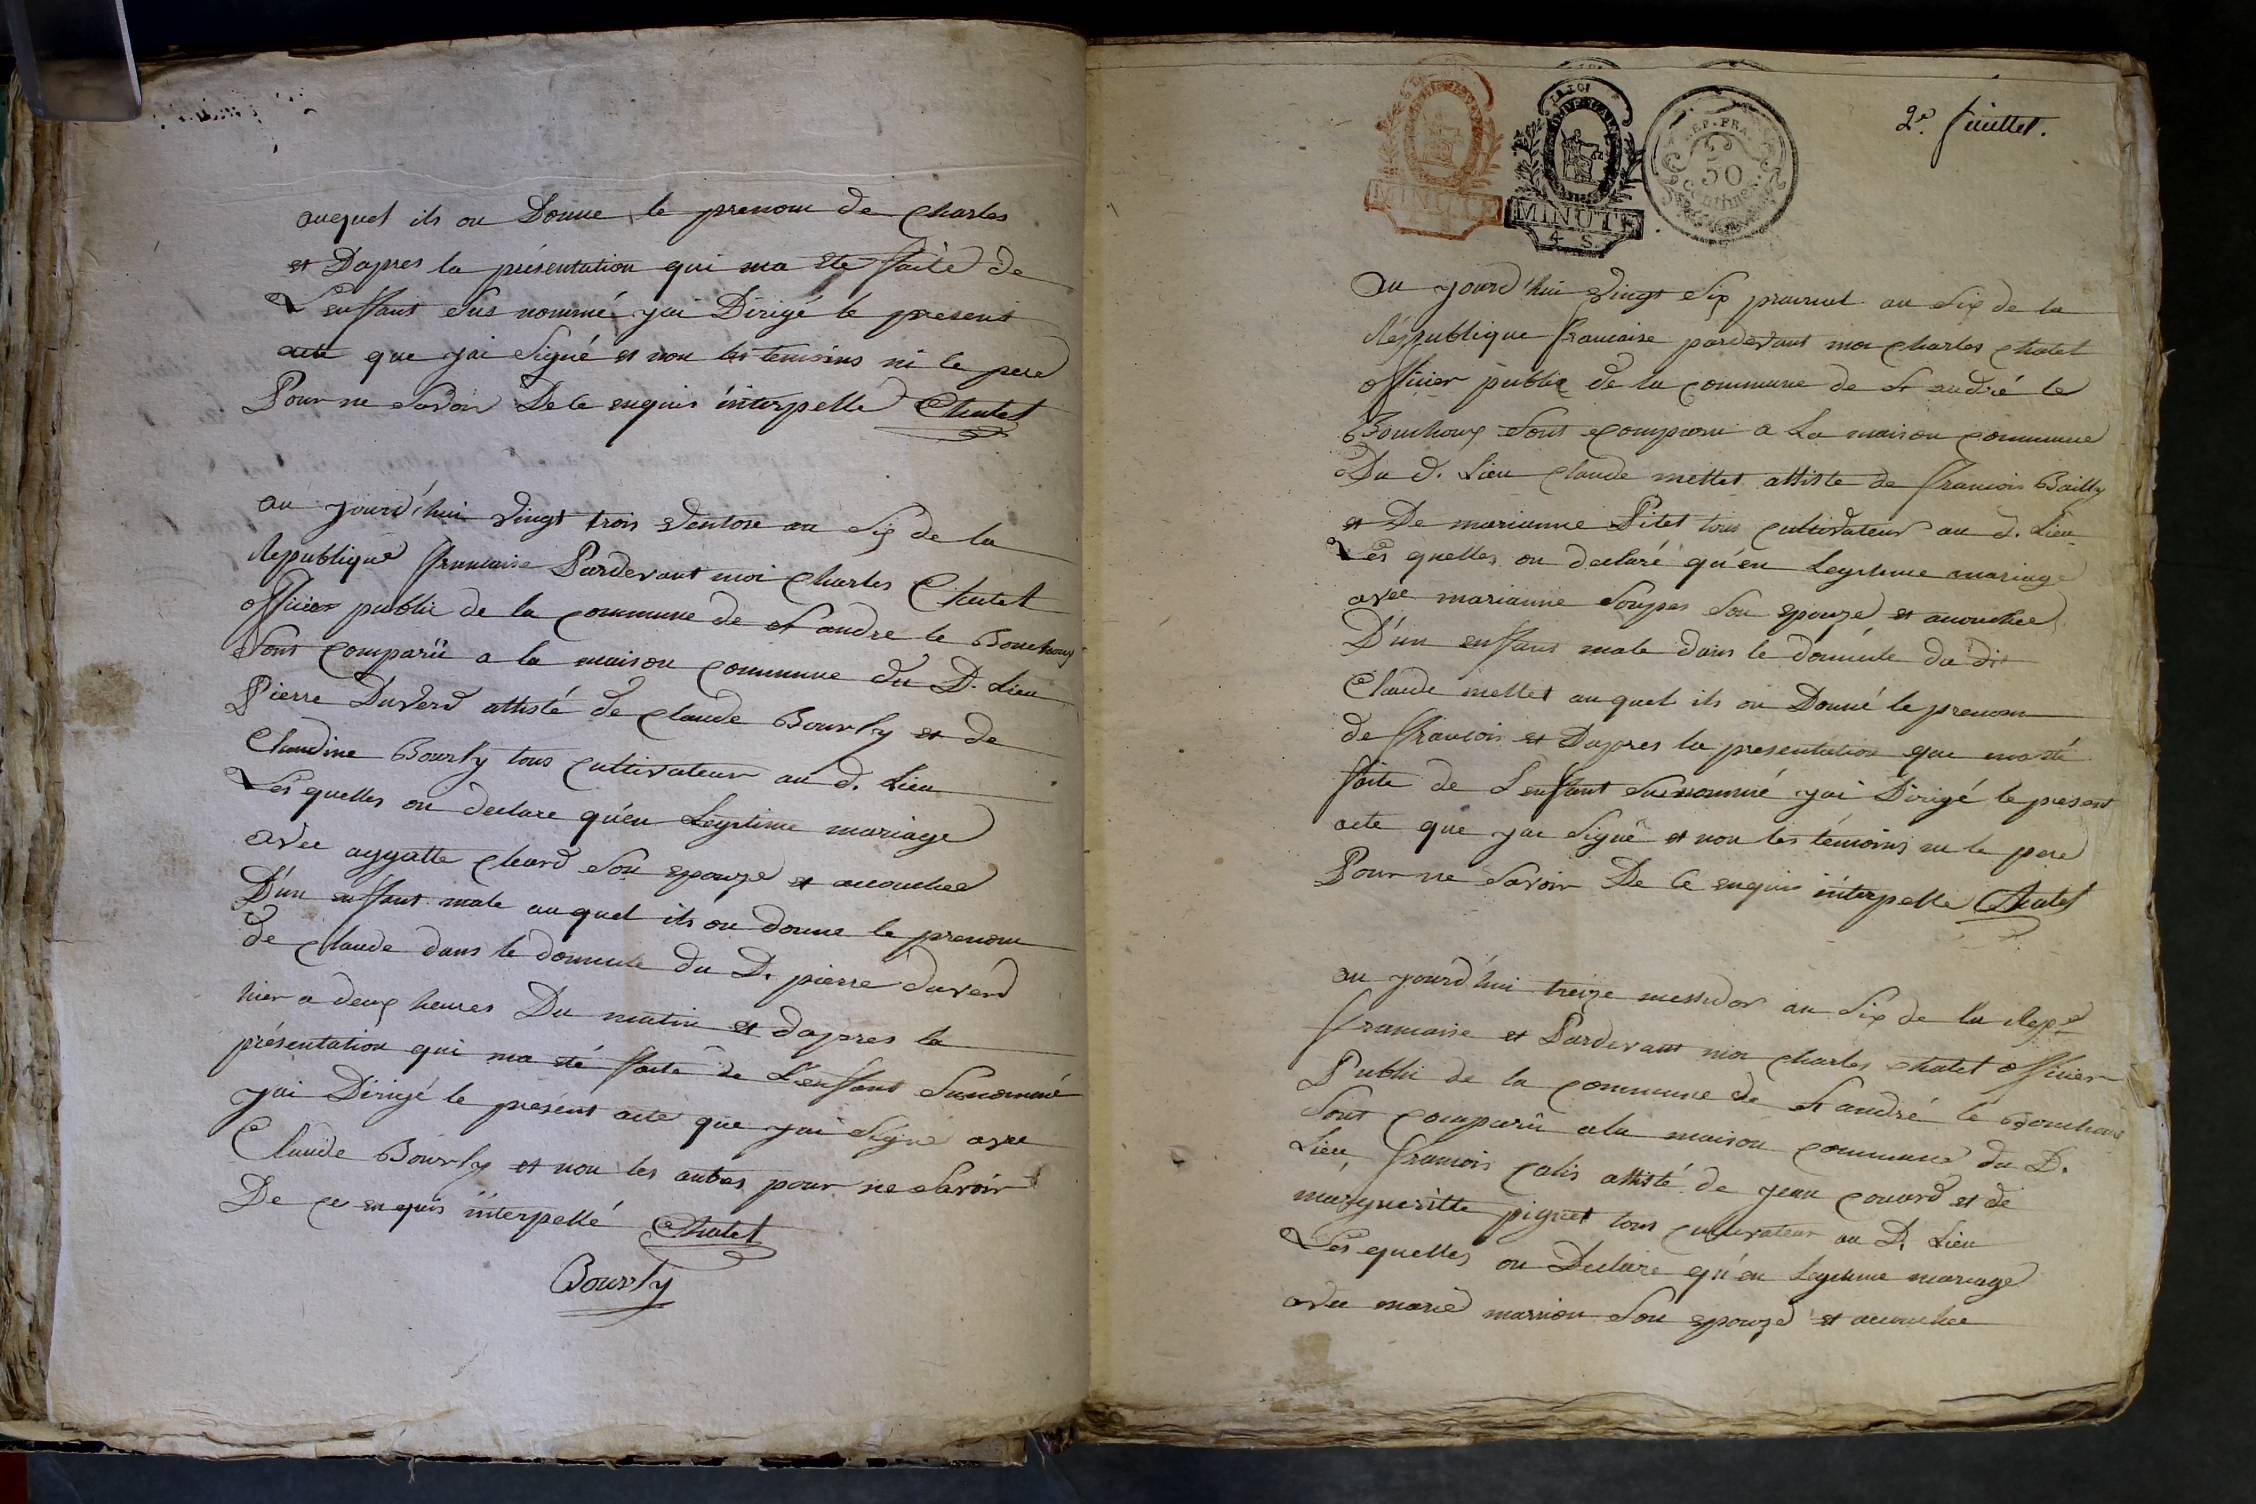 auquel ils on Donne le prenom de Charles
et Dapres la présentation qui ma ete faite de
L'enffant sus nommé jai Dirigé le present
acte que jai Signé et non les temoins ni le pere
Pour ne Savoir De Ce enquis interpellé Chatel
au jourd'hui vingt trois ventose an Six de la
République francaise Pardevant moi Charles Chatel
officier public de la Commune de St andre le Bouchoux
Sont Comparü a la maison Commune du D. Lieu
Pierre Duverd attisté de Claude Bourly et de
Claudine Bourly tous Cultivateur au d. Lieu
Les quelles on declare qu'en Legitime mariage
avec aggatte Cleard Son epouze et acouchee
D'un enffant male au quel ils on donne le prenom
de Claude dans le domicile du D. pierre duverd
hier a deux heures Du matin et dapres la
présentation qui ma eté faite de L'enffant Susnommé
jai Dirigé le présent acte que jai Signé avec
Claude Bourly et non les autres pour ne Savoir
De Ce enquis interpellé Chatel
Bourly
2e. feuillet.
MINUTE
MINUTE
4 S.
REP. FRA.
50
Centimes.
au jourd'hui vingt Six prairial an Six de la
République francaise pardevant moi Charles Chatel
officier public de la Commune de St andré le
Bouchoux Sont Comparu a La maison Commune
Du d. Lieu Claude mettet attiste de francois Bailly
et De marianne Pitet tous Cultivateur au d. Lieu
Les quelles on declaré qu'en Legitime mariage
avec marianne Soupes Son epouze et acouchee
D'un enffant male dans le domicile du dit
Claude mettet au quel ils on Donné le prenom
de francois et Dapres la presentation que ma eté
faite de L'enffant Susnommé jai Dirigé le present
acte que jai Signé et non les témoins ni le pere
Pour ne Savoir De Ce enquis interpelle Chatel
au jourd'hui treize messidor an Six de la Repe
francaise et Pardevant moi Charles Chatel officier
Public de la Commune de St andré le Bouchoux
Sont Comparü a la maison Commune du D.
Lieu, francois Calis attisté de jean Couard et de
margueritte piguet tous Cultivateur au D. Lieu
Les quelles on Declare qu'en Legitime mariage
avec marie marrion Son epouze et acouchee